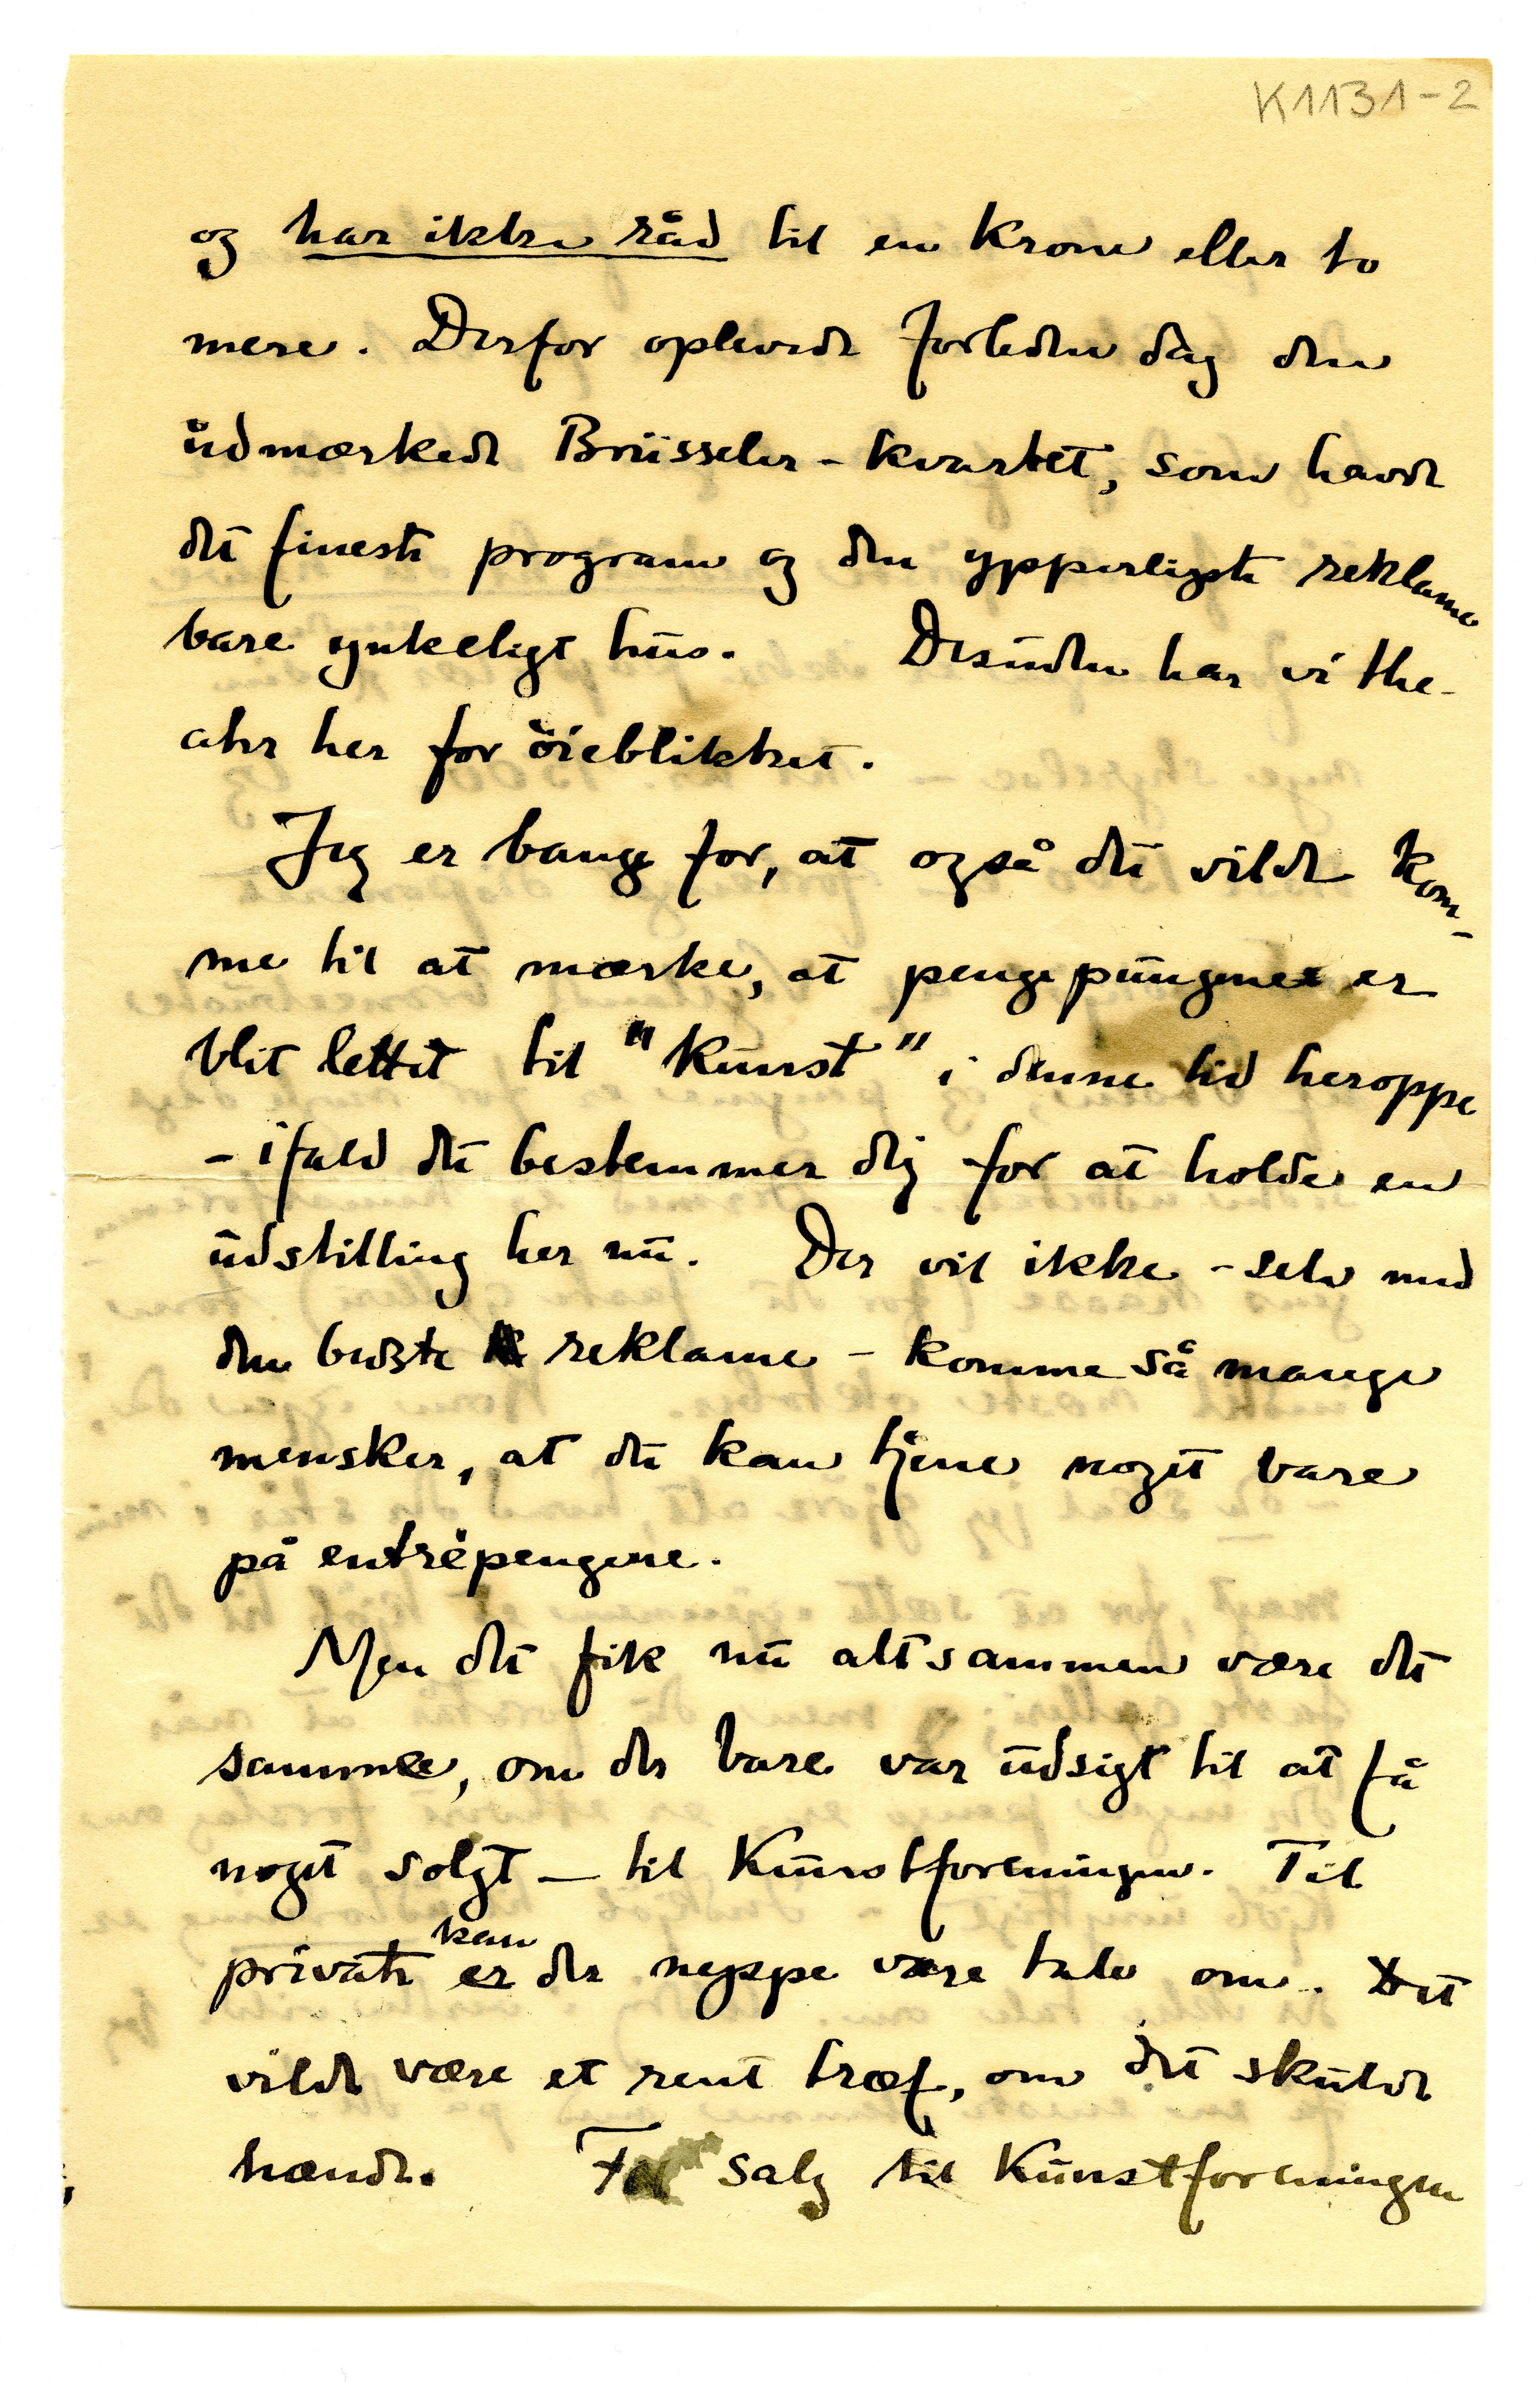 K1131-2
og har ikke råd til en krone eller to
mere. Derfor oplevede forleden dag den
udmærkede Brüsseler-kvartet, som havde
det fineste program og den ypperligste reklame
bare ynkeligt hus. Desuden har vi the-
ater her for öieblikket.
Jeg er bange for, at også du vilde kom-
me til at mærke, at pengepungene er
blit lettet til "kunst" i denne tid heroppe
- ifald du bestemmer dig for at holde en
udstilling her nu. Der vil ikke - selv med
den bedste reklame - komme så mange
mensker, at du kan tjene noget bare
på entrépengene.
Men det fik nu altsammen være det
samme, om der bare var udsigt til at få
noget solgt - til Kunstforeningen. Til
kan
private er der neppe være tale om. Det
vilde være et rent træf, om det skulde
hænde. salg til Kunstforeningen